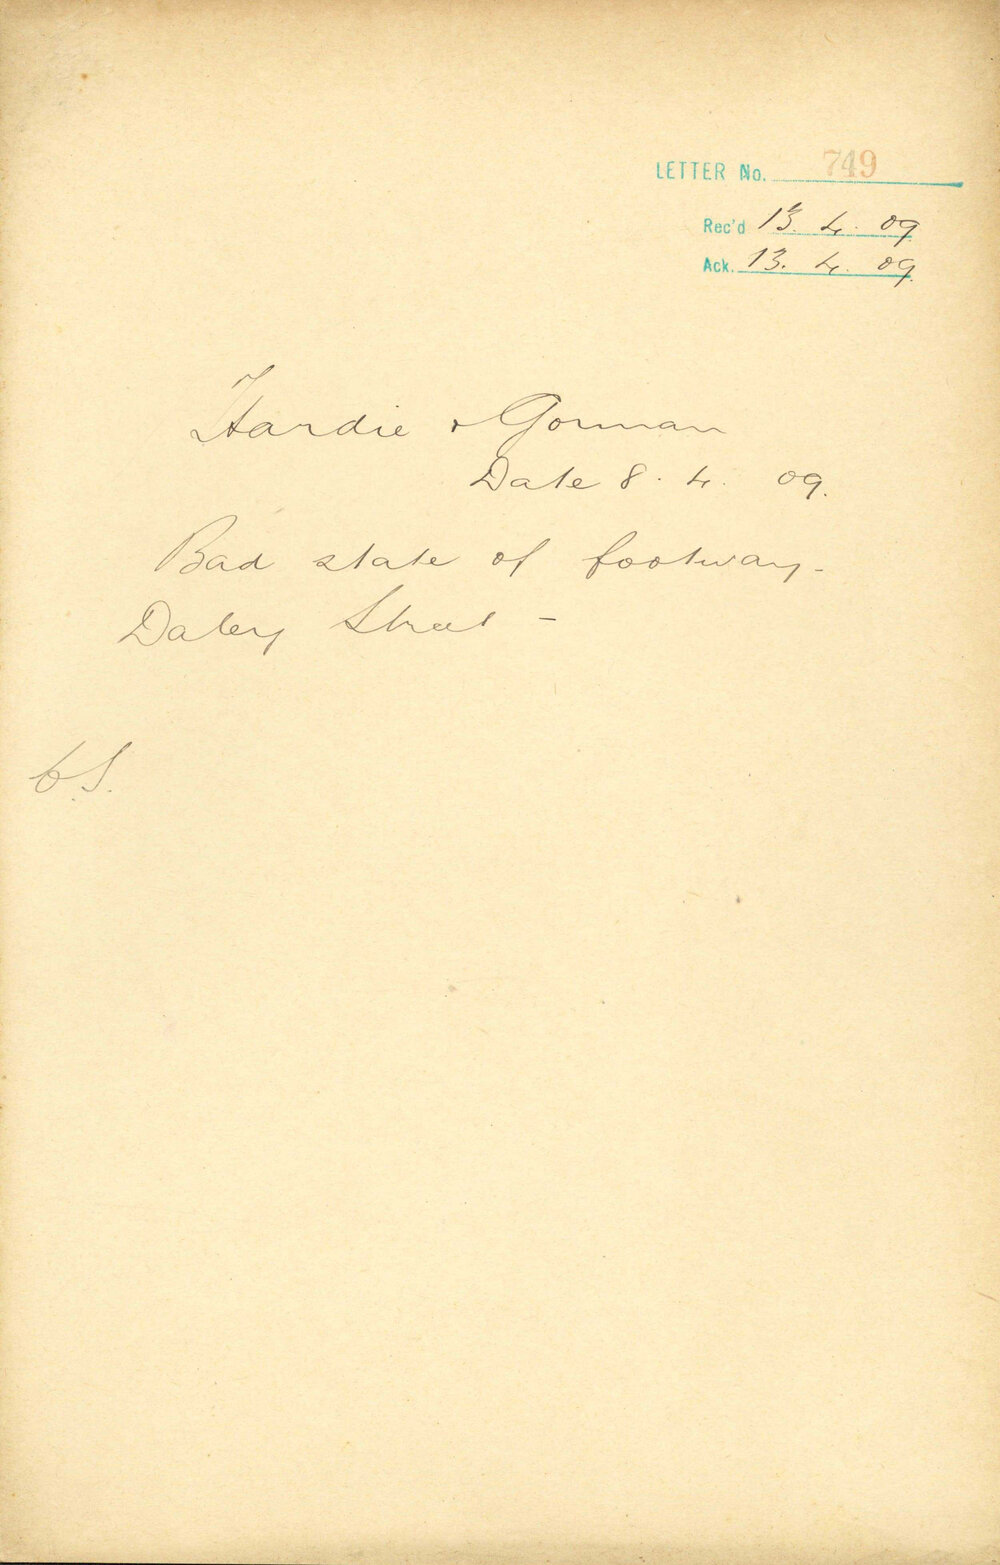 LETTER No. 749
Rec'd 13. 4. 09
Ack. 13. 4. 09.
Hardie & Gorman
Date 8. 4. 09.
Bad state of footway -
Street -